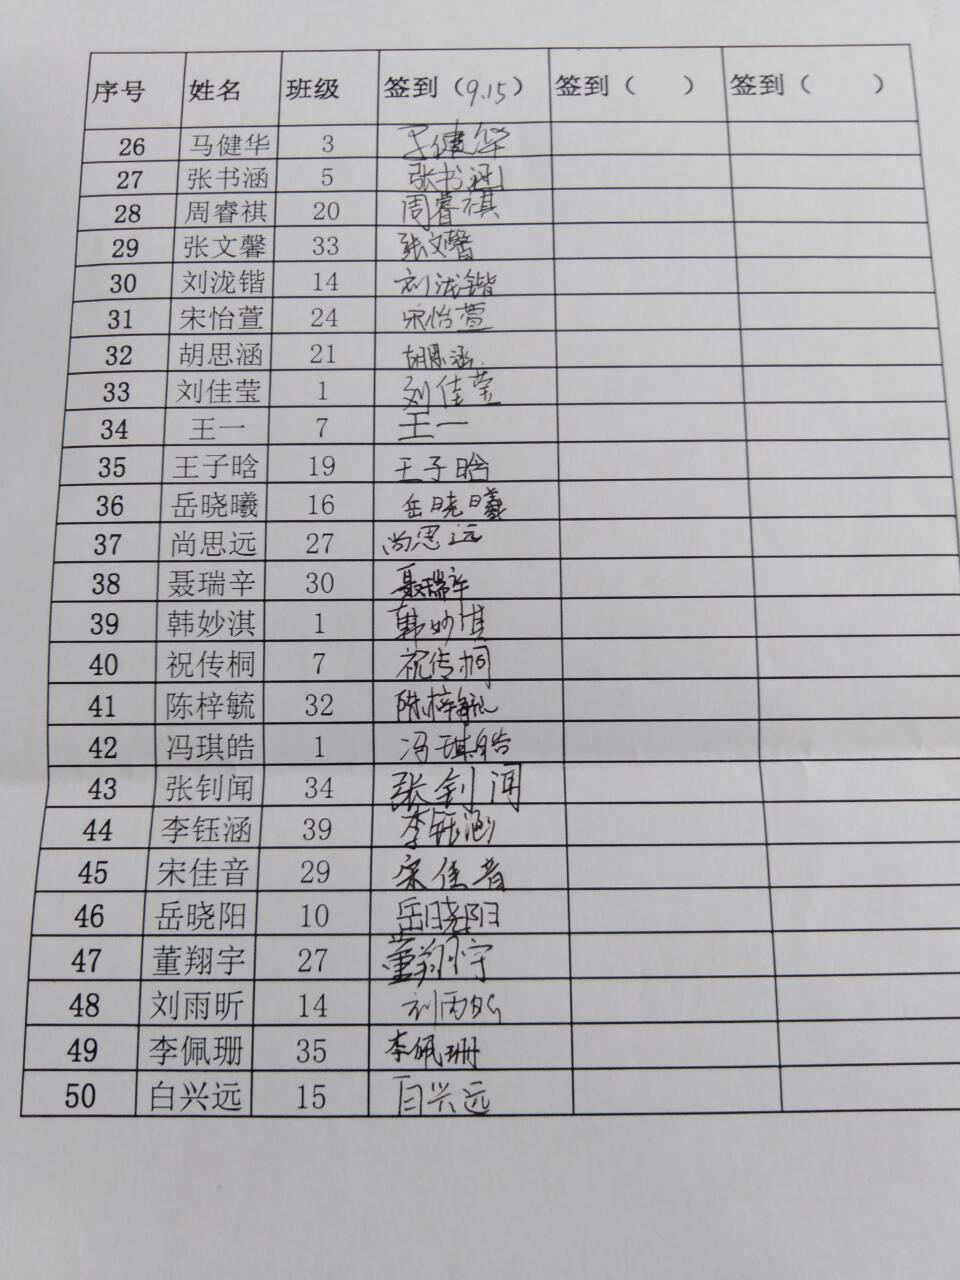 序号 姓名 班级 签到（9.15） 签到（ ） 签到（ ）
26 马健华 3 马健华
27 张书涵 5 张书涵
28 周睿祺 20 周睿祺
29 张文馨 33 张文馨
30 刘泷锴 14 刘泷锴
31 宋怡萱 24 宋怡萱
32 胡思涵 21 胡思涵
33 刘佳莹 1 刘佳莹
34 王一 7 王一
35 王子晗 19 王子晗
36 岳晓曦 16 岳晓曦
37 尚思远 27 尚思远
38 聂瑞辛 30 聂瑞辛
39 韩妙淇 1 韩妙淇
40 祝传桐 7 祝传桐
41 陈梓毓 32 陈梓毓
42 冯琪皓 1 冯琪皓
43 张钊闻 34 张钊闻
44 李钰涵 39 李钰涵
45 宋佳音 29 宋佳音
46 岳晓阳 10 岳晓阳
47 董翔宇 27 董翔宇
48 刘雨昕 14 刘雨昕
49 李佩珊 35 李佩珊
50 白兴远 15 白兴远